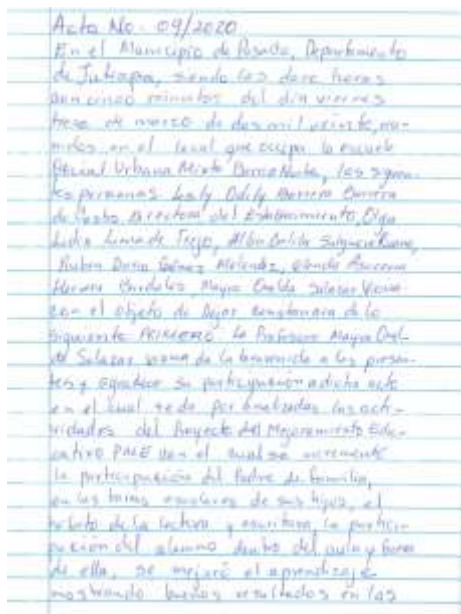 Acta No. 09/2020
En el Municipio de Pasaco, Departamento
de Jutiapa, siendo las doce horas
con cinco minutos del día viernes
trece de marzo de dos mil veinte, reu-
nidos en el local que ocupa la escuela
Oficial Urbana Mixta Barrio Norte, las siguien-
tes personas Lesly Odily Barrera Barrera
de Directora del Establecimiento, Olga
Lidia Lima de Trejo, Alba
Rubén Darío Gómez Meléndez, Glenda Azucena
Mayra Onelda Salazar
con el objeto de dejar constancia de lo
siguiente PRIMERO: La Profesora Mayra Onel-
da Salazar da la bienvenida a los presen-
tes y agradece su participación a dicho acto
en el cual se da por finalizadas las acti-
vidades del Proyecto del Mejoramiento Edu-
cativo PME con el cual se incremento
la participación del Padre de familia,
en las tareas escolares de sus hijos, el
hábito de la lectura y escritura, la partici-
pación del alumno dentro del aula y fuera
de ella, se mejoró el aprendizaje
mostrando buenos resultados en las